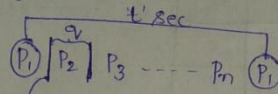 t' sec
q
P₁ P₂ P₃ ---- Pn P₁